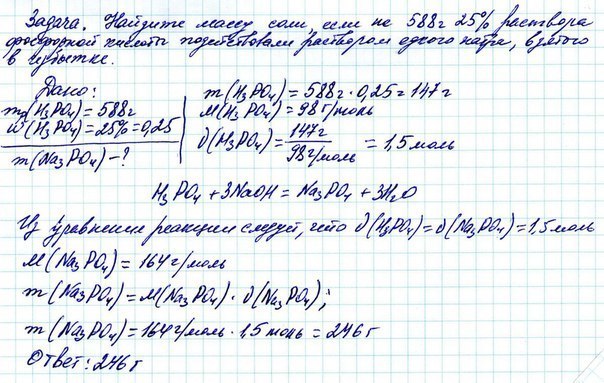 Задача. Найдите массу соли, если на 588г 25% раствора
фосфорной кислоты подействовали раствором едкого натра, взятого
в избытке.
Дано:
mр(H₃PO₄) = 588г
ω(H₃PO₄) = 25% = 0,25
m(Na₃PO₄) - ?
m(H₃PO₄) = 588г · 0,25 = 147г
M(H₃PO₄) = 98г/моль
ν(H₃PO₄) = 147г / 98г/моль = 1,5моль
H₃PO₄ + 3NaOH = Na₃PO₄ + 3H₂O
Из уравнения реакции следует, что ν(H₃PO₄) = ν(Na₃PO₄) = 1,5моль
M(Na₃PO₄) = 164г/моль
m(Na₃PO₄) = M(Na₃PO₄) · ν(Na₃PO₄);
m(Na₃PO₄) = 164г/моль · 1,5моль = 246г
Ответ: 246г